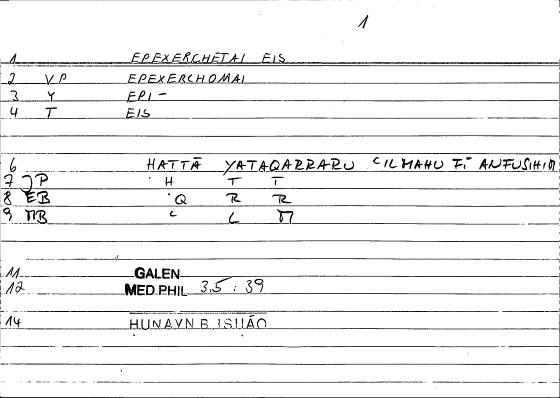 1
1 EPEXERCHETAI EIS
2 VP EPEXERCHOMAI
3 Y EPI-
4 T EIS
6 HATTĀ YATAQARRARU ʿILMAHU FĪ ANFUSIHIM
7 JP H T T
8 EB Q R R
9 ПB C L П
11 GALEN
12 MED.PHIL 3.5 : 39
14 HUNAYN B.ISHĀQ